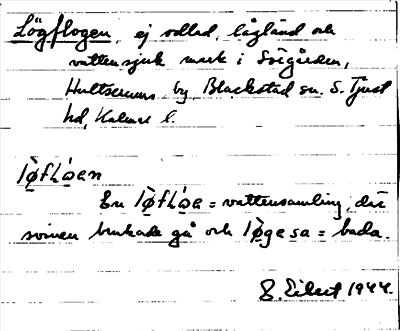 Lögflogen, ej odlad, lågländ och
vattensjuk mark i Sörgården,
Hultserums by, Blackstad sn. S. Tjust
hd, Kalmar l.
lø̀fLóen
En lø̀fLóa = vattensamling, där
svinen brukade gå och lø̀gesa = bada.
8. Eibert 1944.